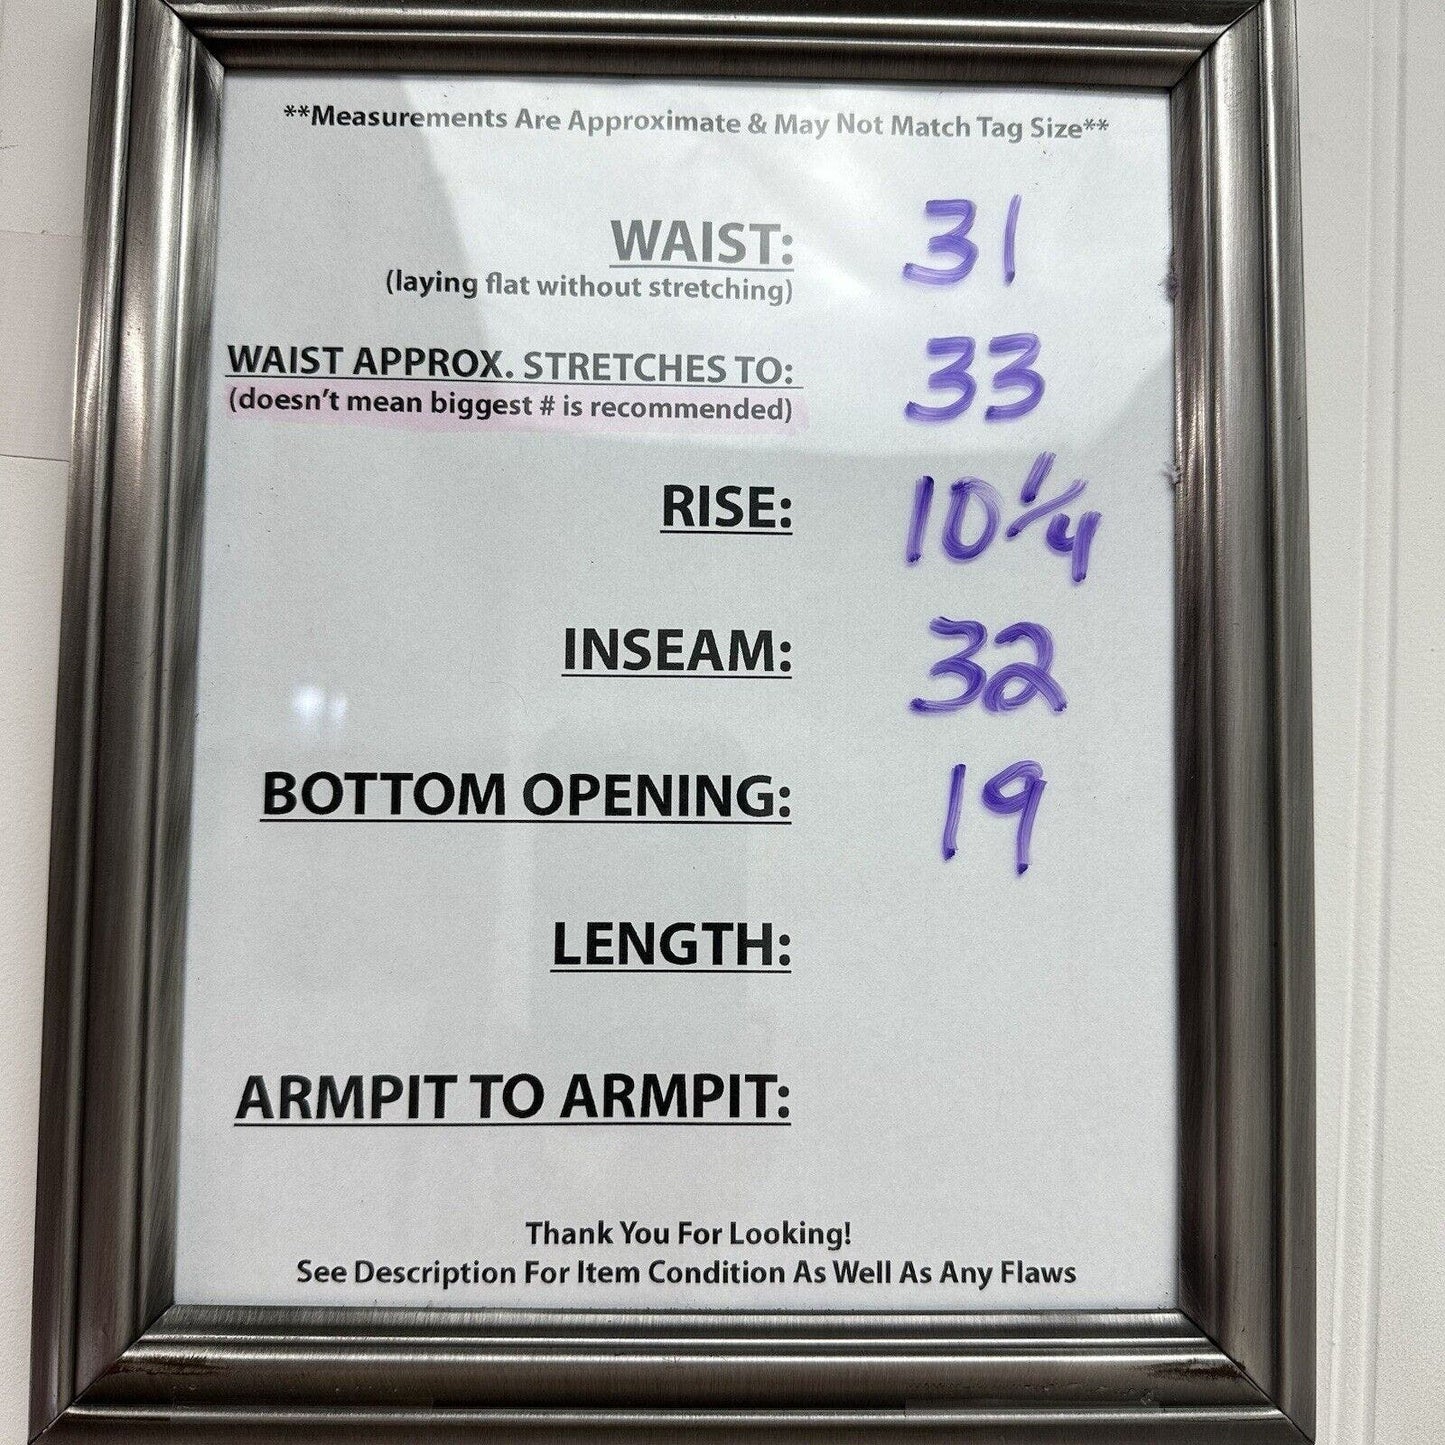 **Measurements Are Approximate & May Not Match Tag Size**
WAIST: 31
(laying flat without stretching)
WAIST APPROX. STRETCHES TO: 33
(doesn't mean biggest # is recommended)
RISE: 10 1/4
INSEAM: 32
BOTTOM OPENING: 19
LENGTH:
ARMPIT TO ARMPIT:
Thank You For Looking!
See Description For Item Condition As Well As Any Flaws